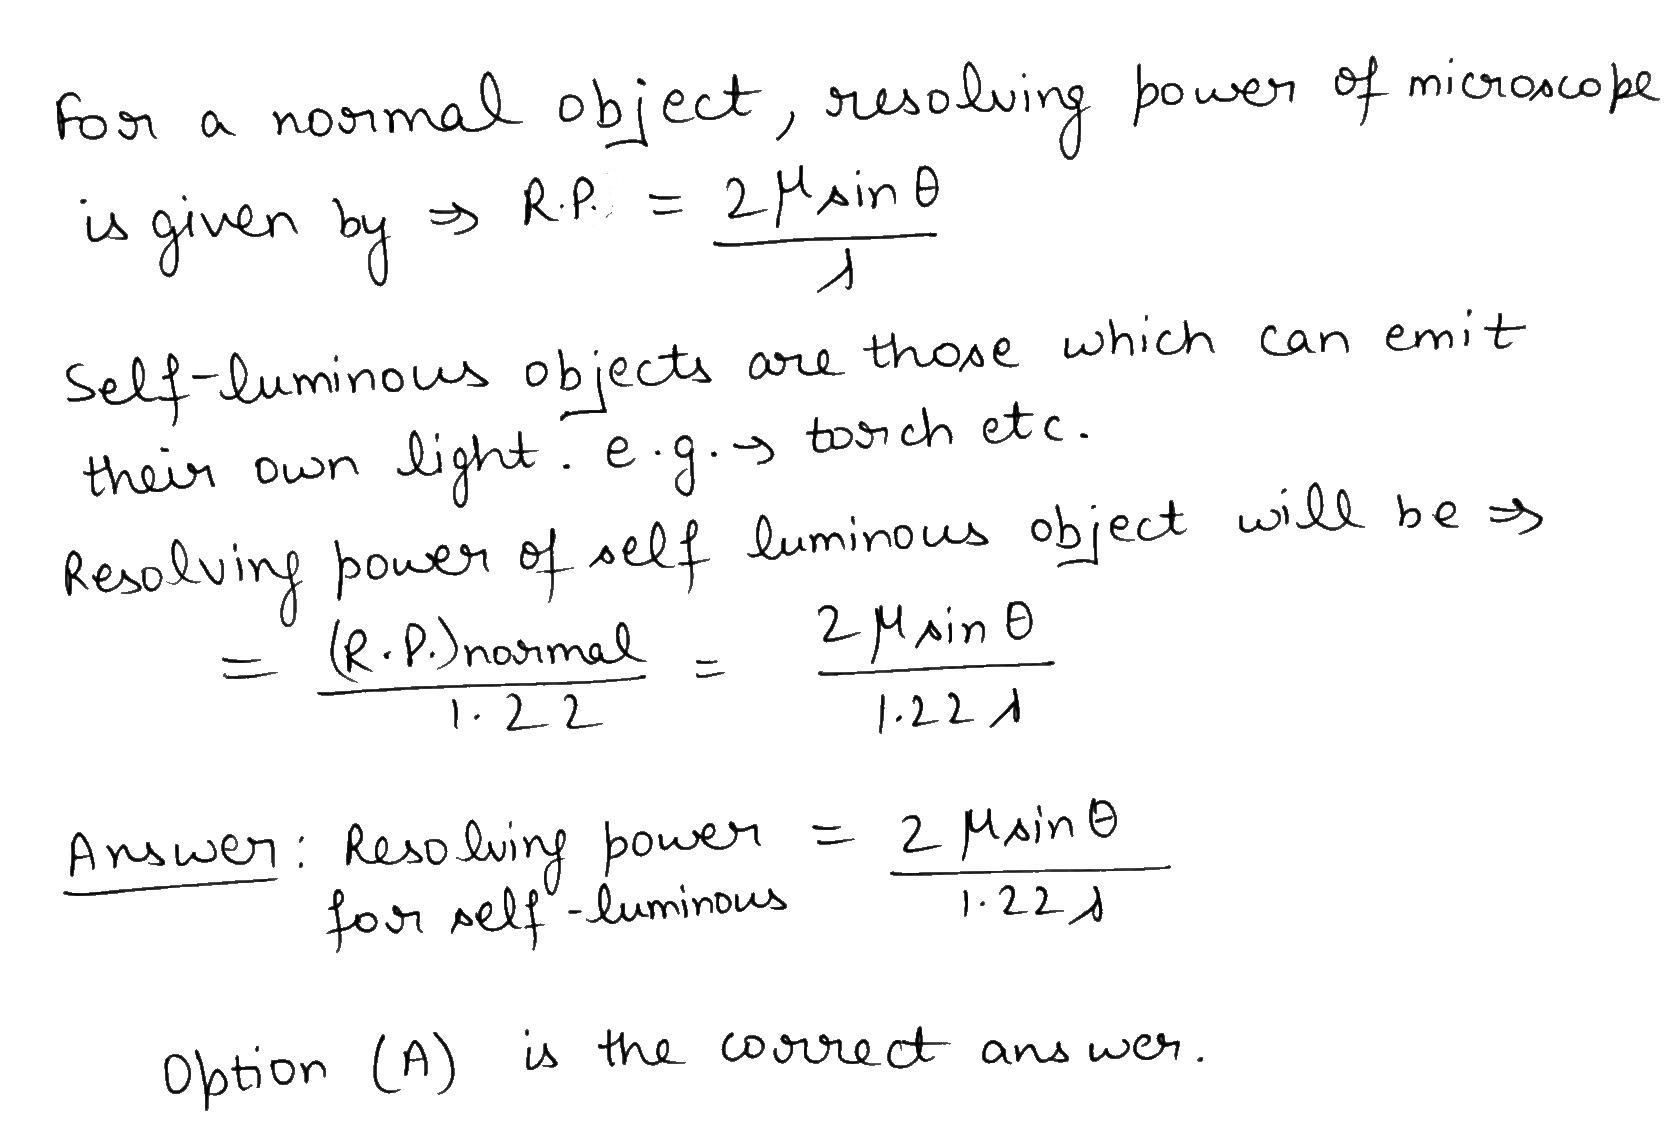 For a normal object, resolving power of microscope
is given by ⇒ R.P. = 2 μ sin θ / λ
Self-luminous objects are those which can emit
their own light. e.g. → torch etc.
Resolving power of self luminous object will be ⇒
= (R.P.)normal / 1.22 = 2 μ sin θ / 1.22 λ
Answer: Resolving power = 2 μ sin θ / 1.22 λ
for self-luminous
Option (A) is the correct answer.